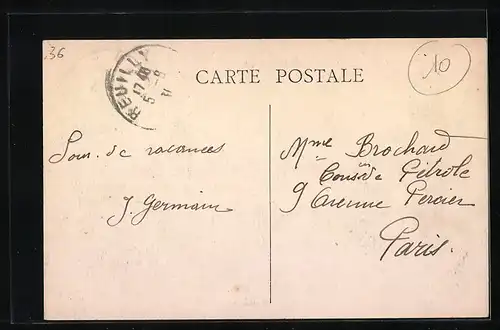 36
REUILLY
17 40
5 - 9
CARTE POSTALE
10
Souv. de vacances
J. Germain
Mme Brochard
Pétrole
9 Avenue Percier
Paris.